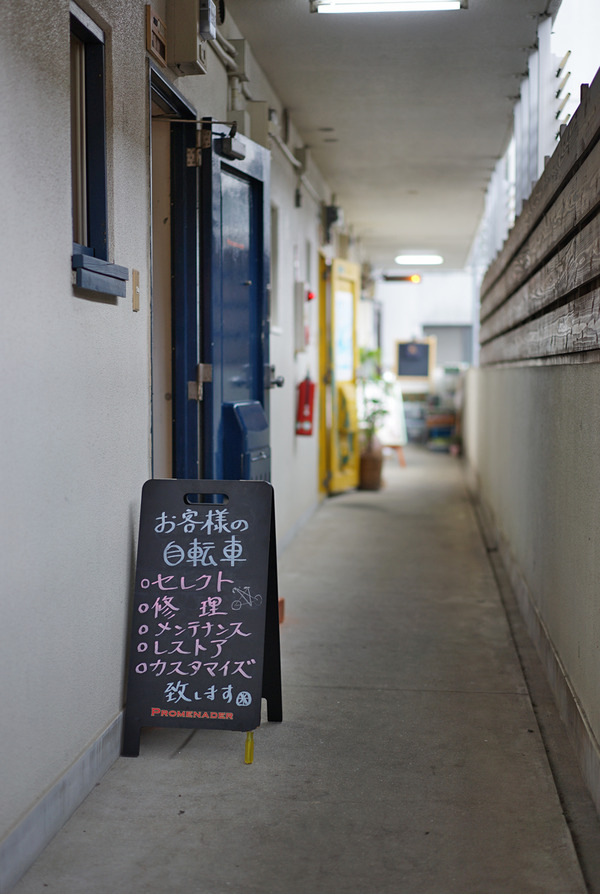 お客様の
自転車
○セレクト
○修 理
○メンテナンス
○レストア
○カスタマイズ
致します
PROMENADER